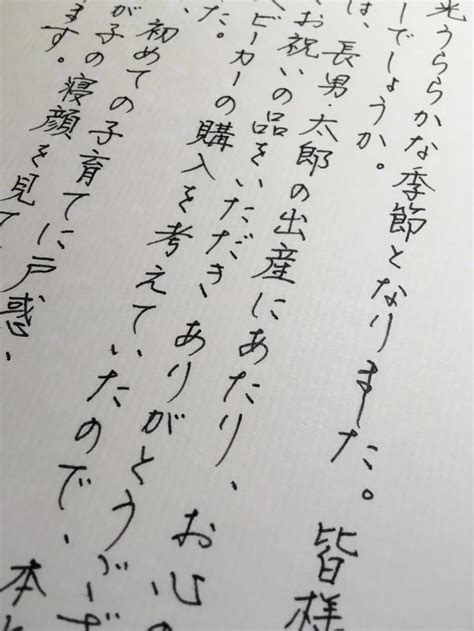 光うららかな季節となりました。皆様
しでしょうか。
は、長男・太郎の出産にあたり、お心の
お祝いの品をいただき、ありがとうござ
ベビーカーの購入を考えていたので、本
た。
初めての子育てに戸惑
が子の寝顔を見て
ます。